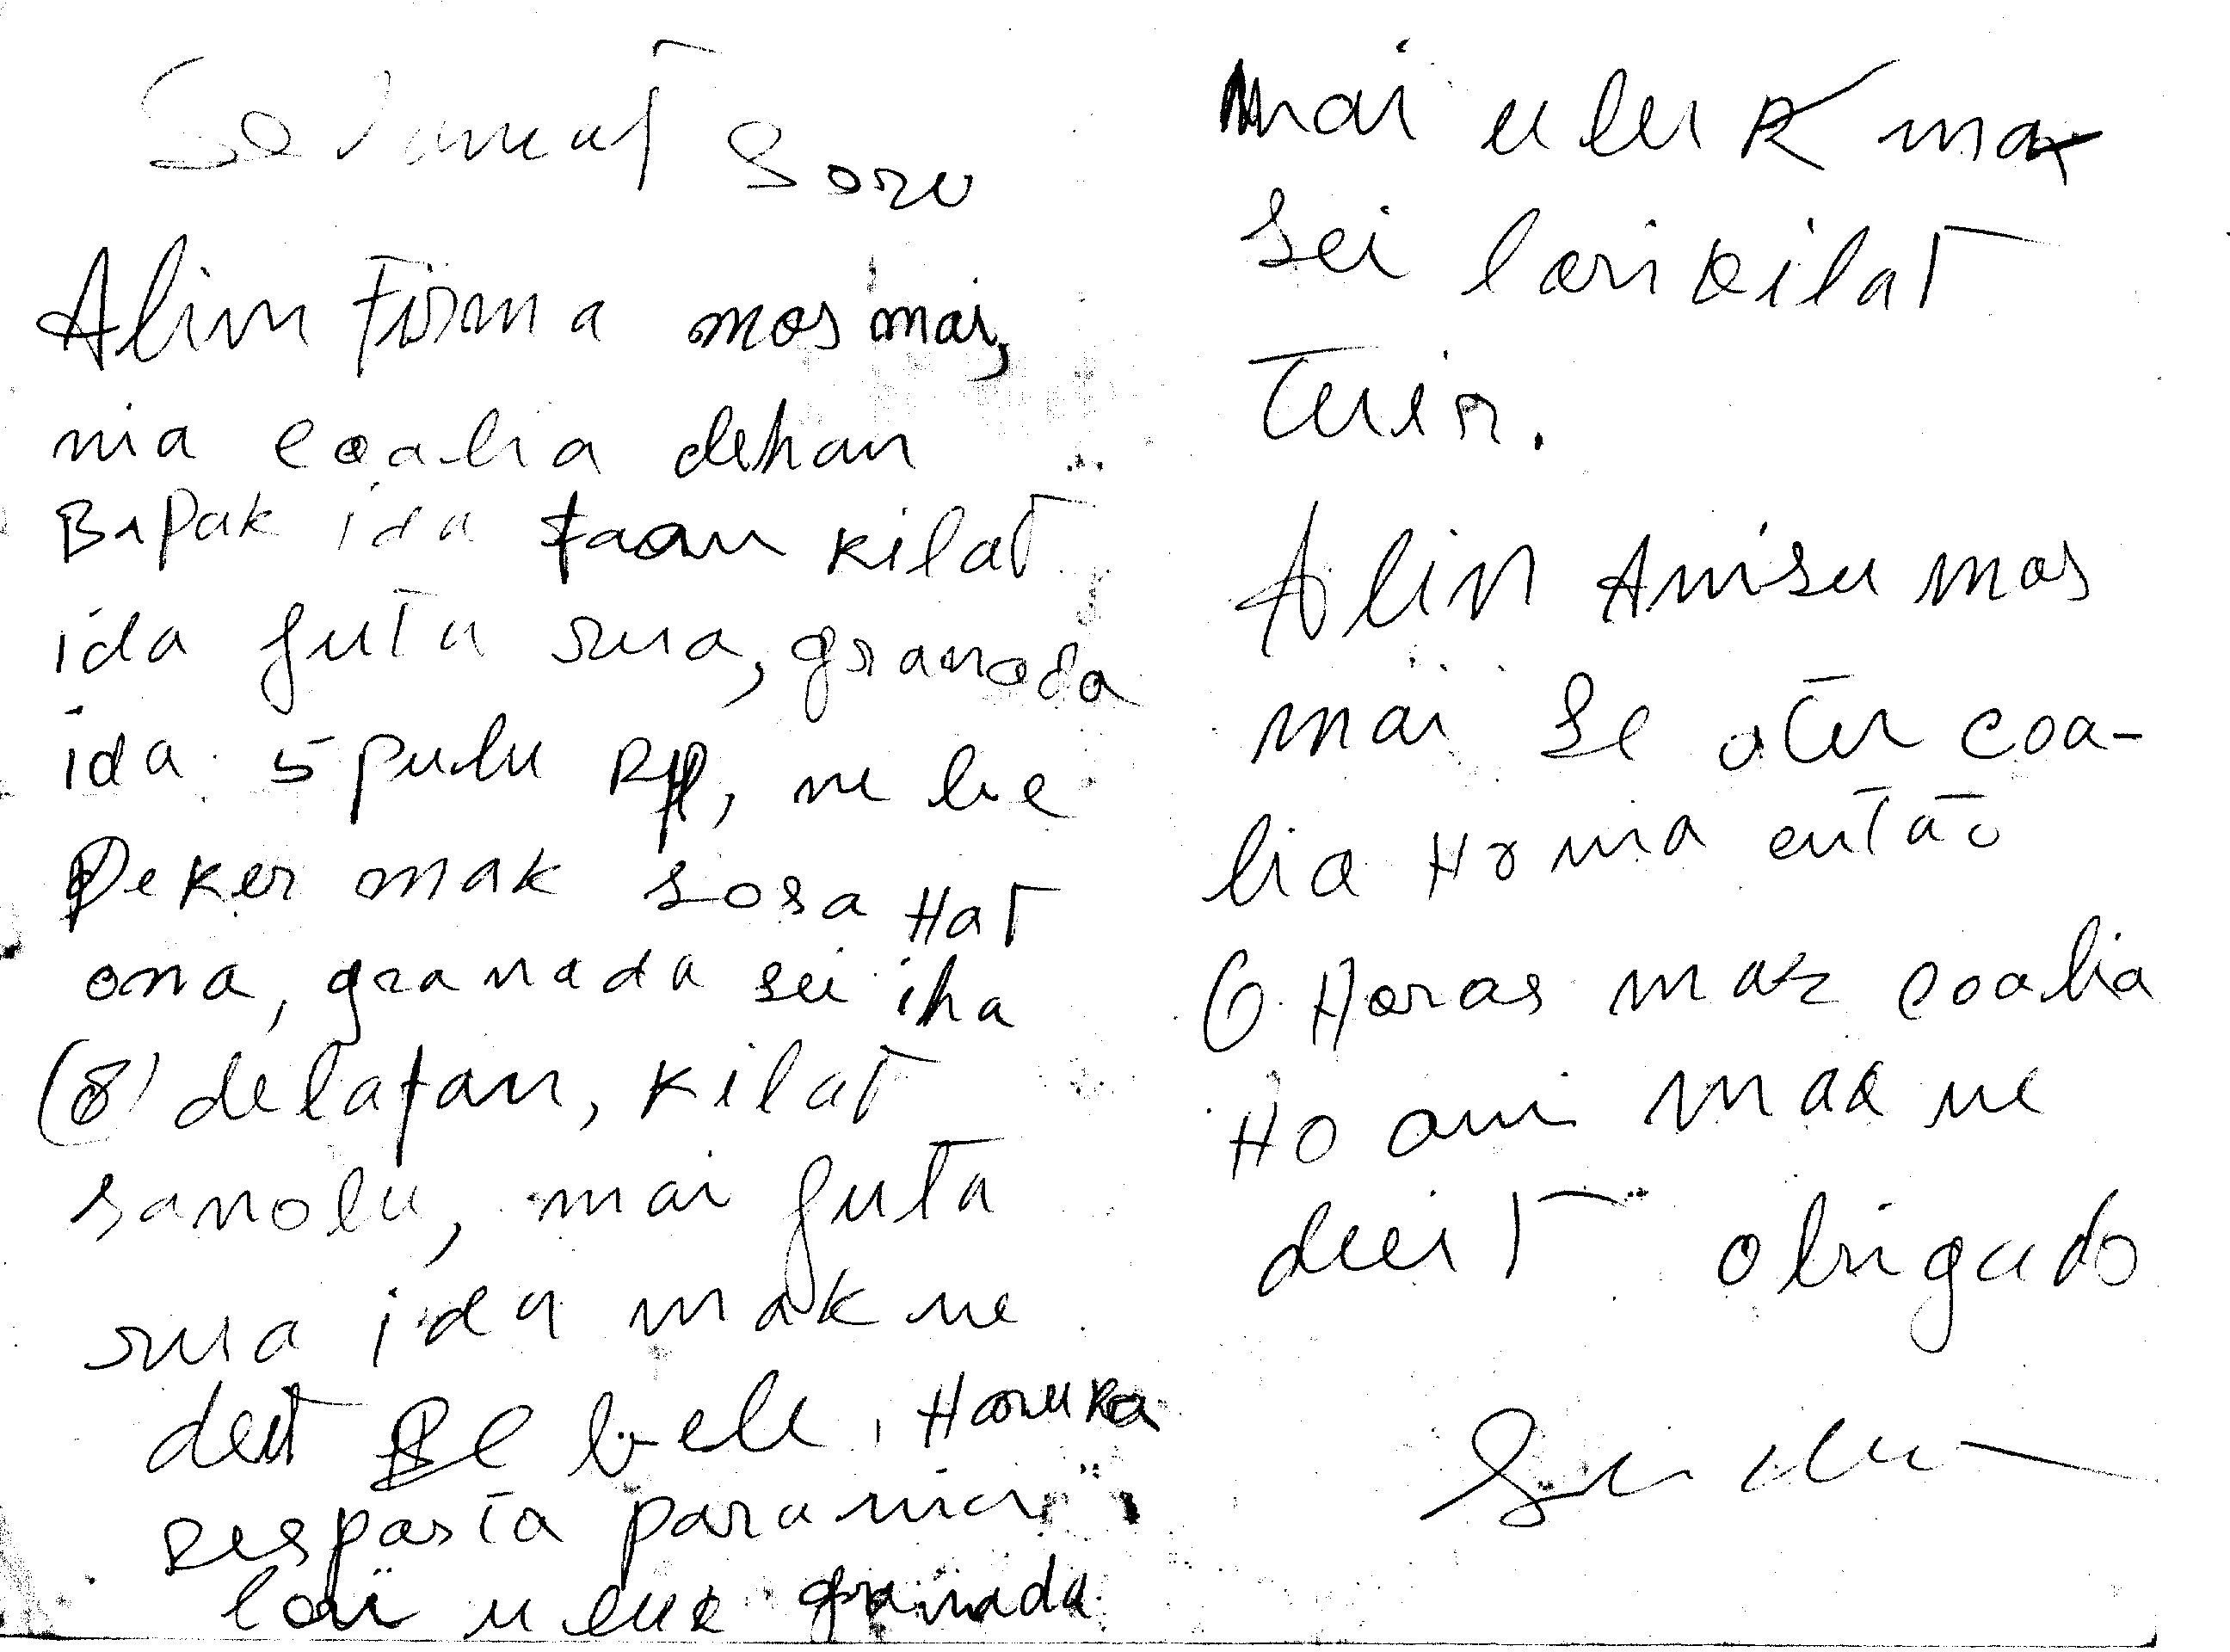 Selamat Soru
Alin Firma mos mai,
nia coalia dehan
Bapak ida faan kilat
ida futu rua, granada
ida 5 pulu RP, ne be
Peker mak sosa Hat
ona, granada sei iha
(8) delapan, kilat
sanolu, mai futa
rua ida mak ne
deit se bele, Haruka
resposta para nia
lori uluk granada
mai uluk ma
sei lori kilat
tuir.
Alin Anisu mos
mai se atu coa-
lia Ho nia então
6 Horas mak coalia
Ho ami mak ne
deit obrigado